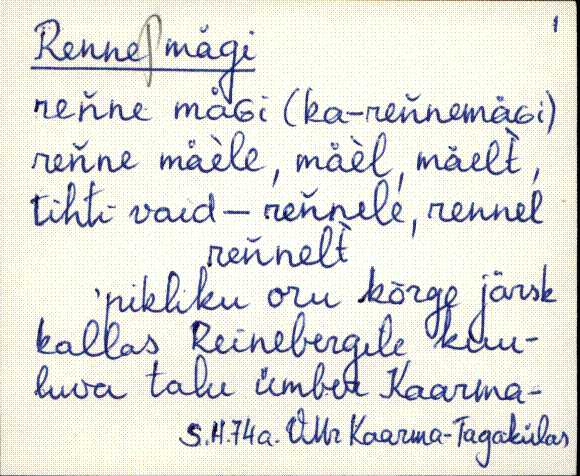 1
Renne mägi
reňne måGi (ka-reňnemåGi)
reňne måèle, måèl, måelt̀,
tihti vaid – reňnele, rennel
reňnelt̀
pikliku oru kõrge järsk
kallas Reinebergile kuu-
luva talu ümber Kaarma-
S.H. 74a. Kaarma-Tagakülas